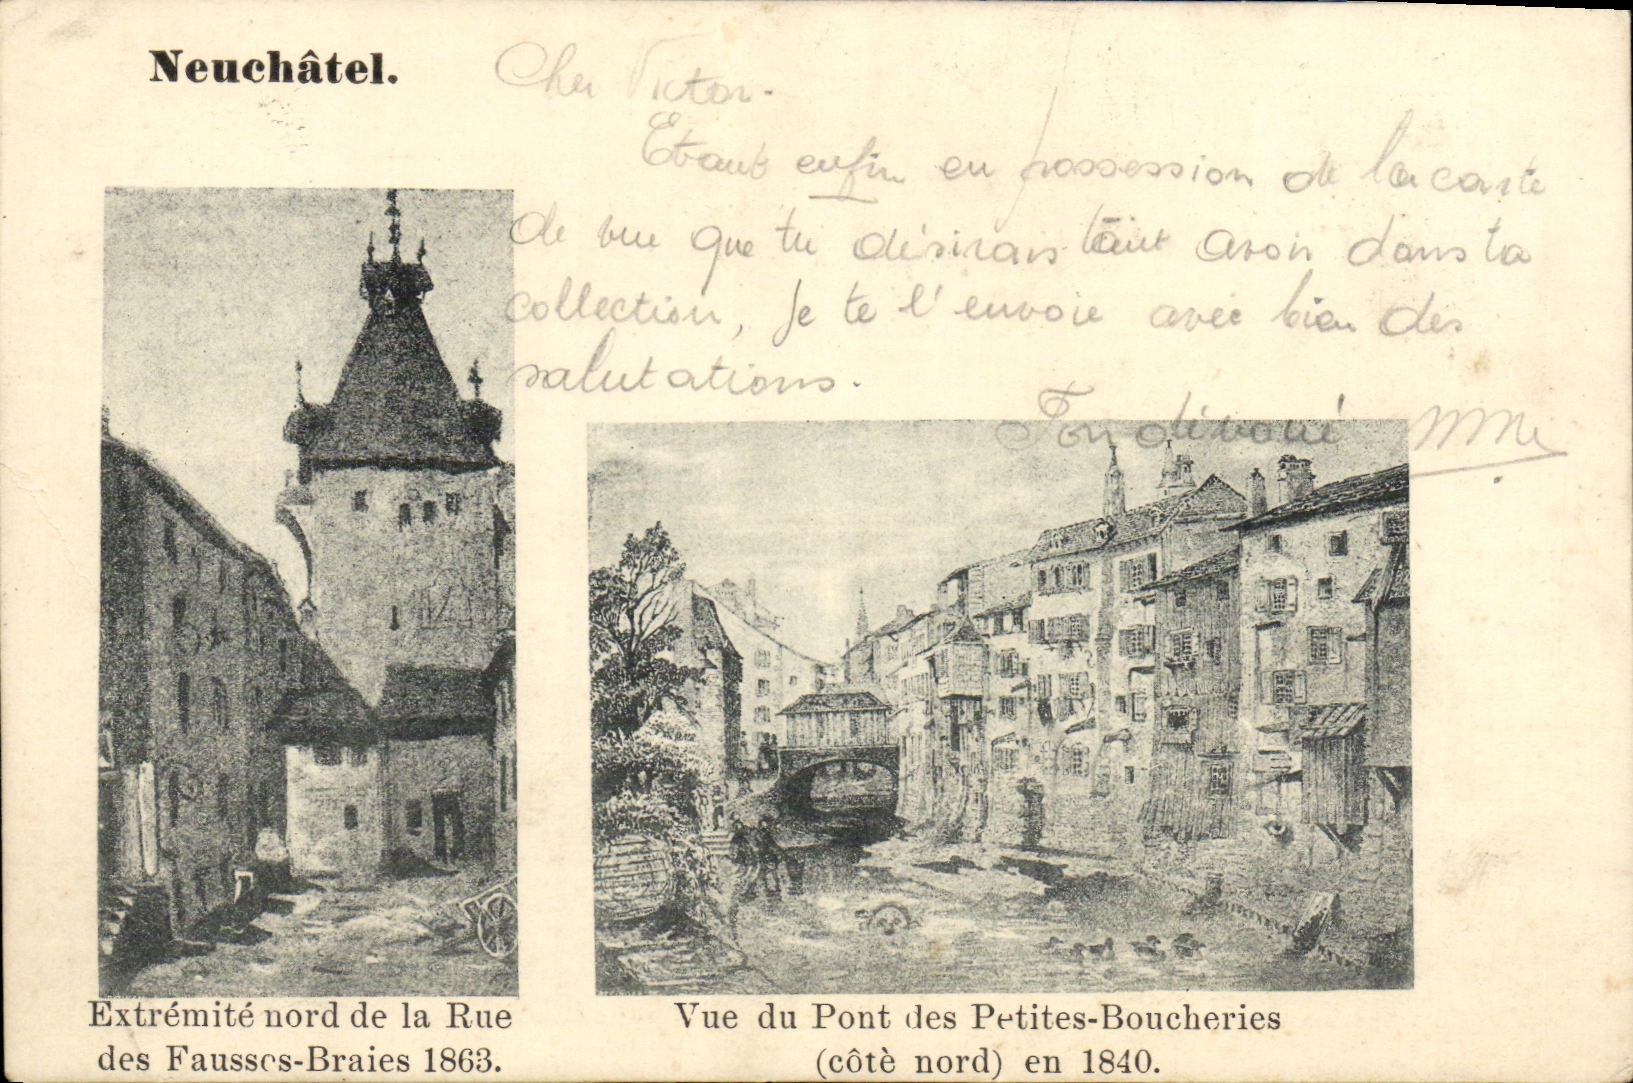 Neuchâtel.
Cher Victor.
Etant enfin en possession de la carte
de vue que tu désirais tant avoir dans ta
collection, je te l'envoie avec bien des
salutations.
Ton dévoué
Extrémité nord de la Rue
des Fausses-Braies 1863.
Vue du Pont des Petites-Boucheries
(côtè nord) en 1840.